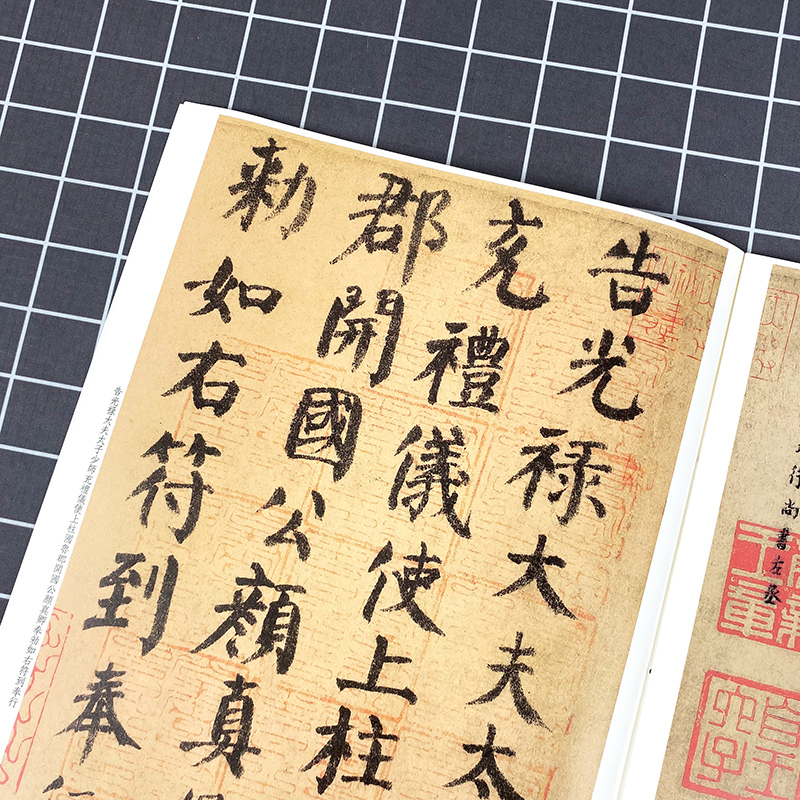 行尚書左丞
告光祿大夫太
充禮儀使上柱
郡開國公顏真
勅如右符到奉
告光祿大夫太子少師充禮儀使上柱國魯郡開國公顏真卿奉勅如右符到奉行